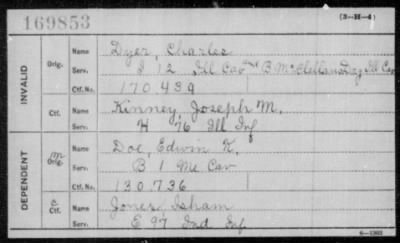 169853
(3-H-4)
INVALID
Orig.
Name Dyer, Charles
Serv. I 12 Ill Cav and B McClellan Drag Ill Cav
Ctf. No. 170.439
Ctf.
Name Kinney, Joseph M.
Serv. H 76 Ill Inf
DEPENDENT
m Orig.
Name Doe, Edwin K.
Serv. B 1 Me Cav
Ctf. No. 130.736
c Ctf.
Name Jones, Isham
Serv. E 97 Ind Inf